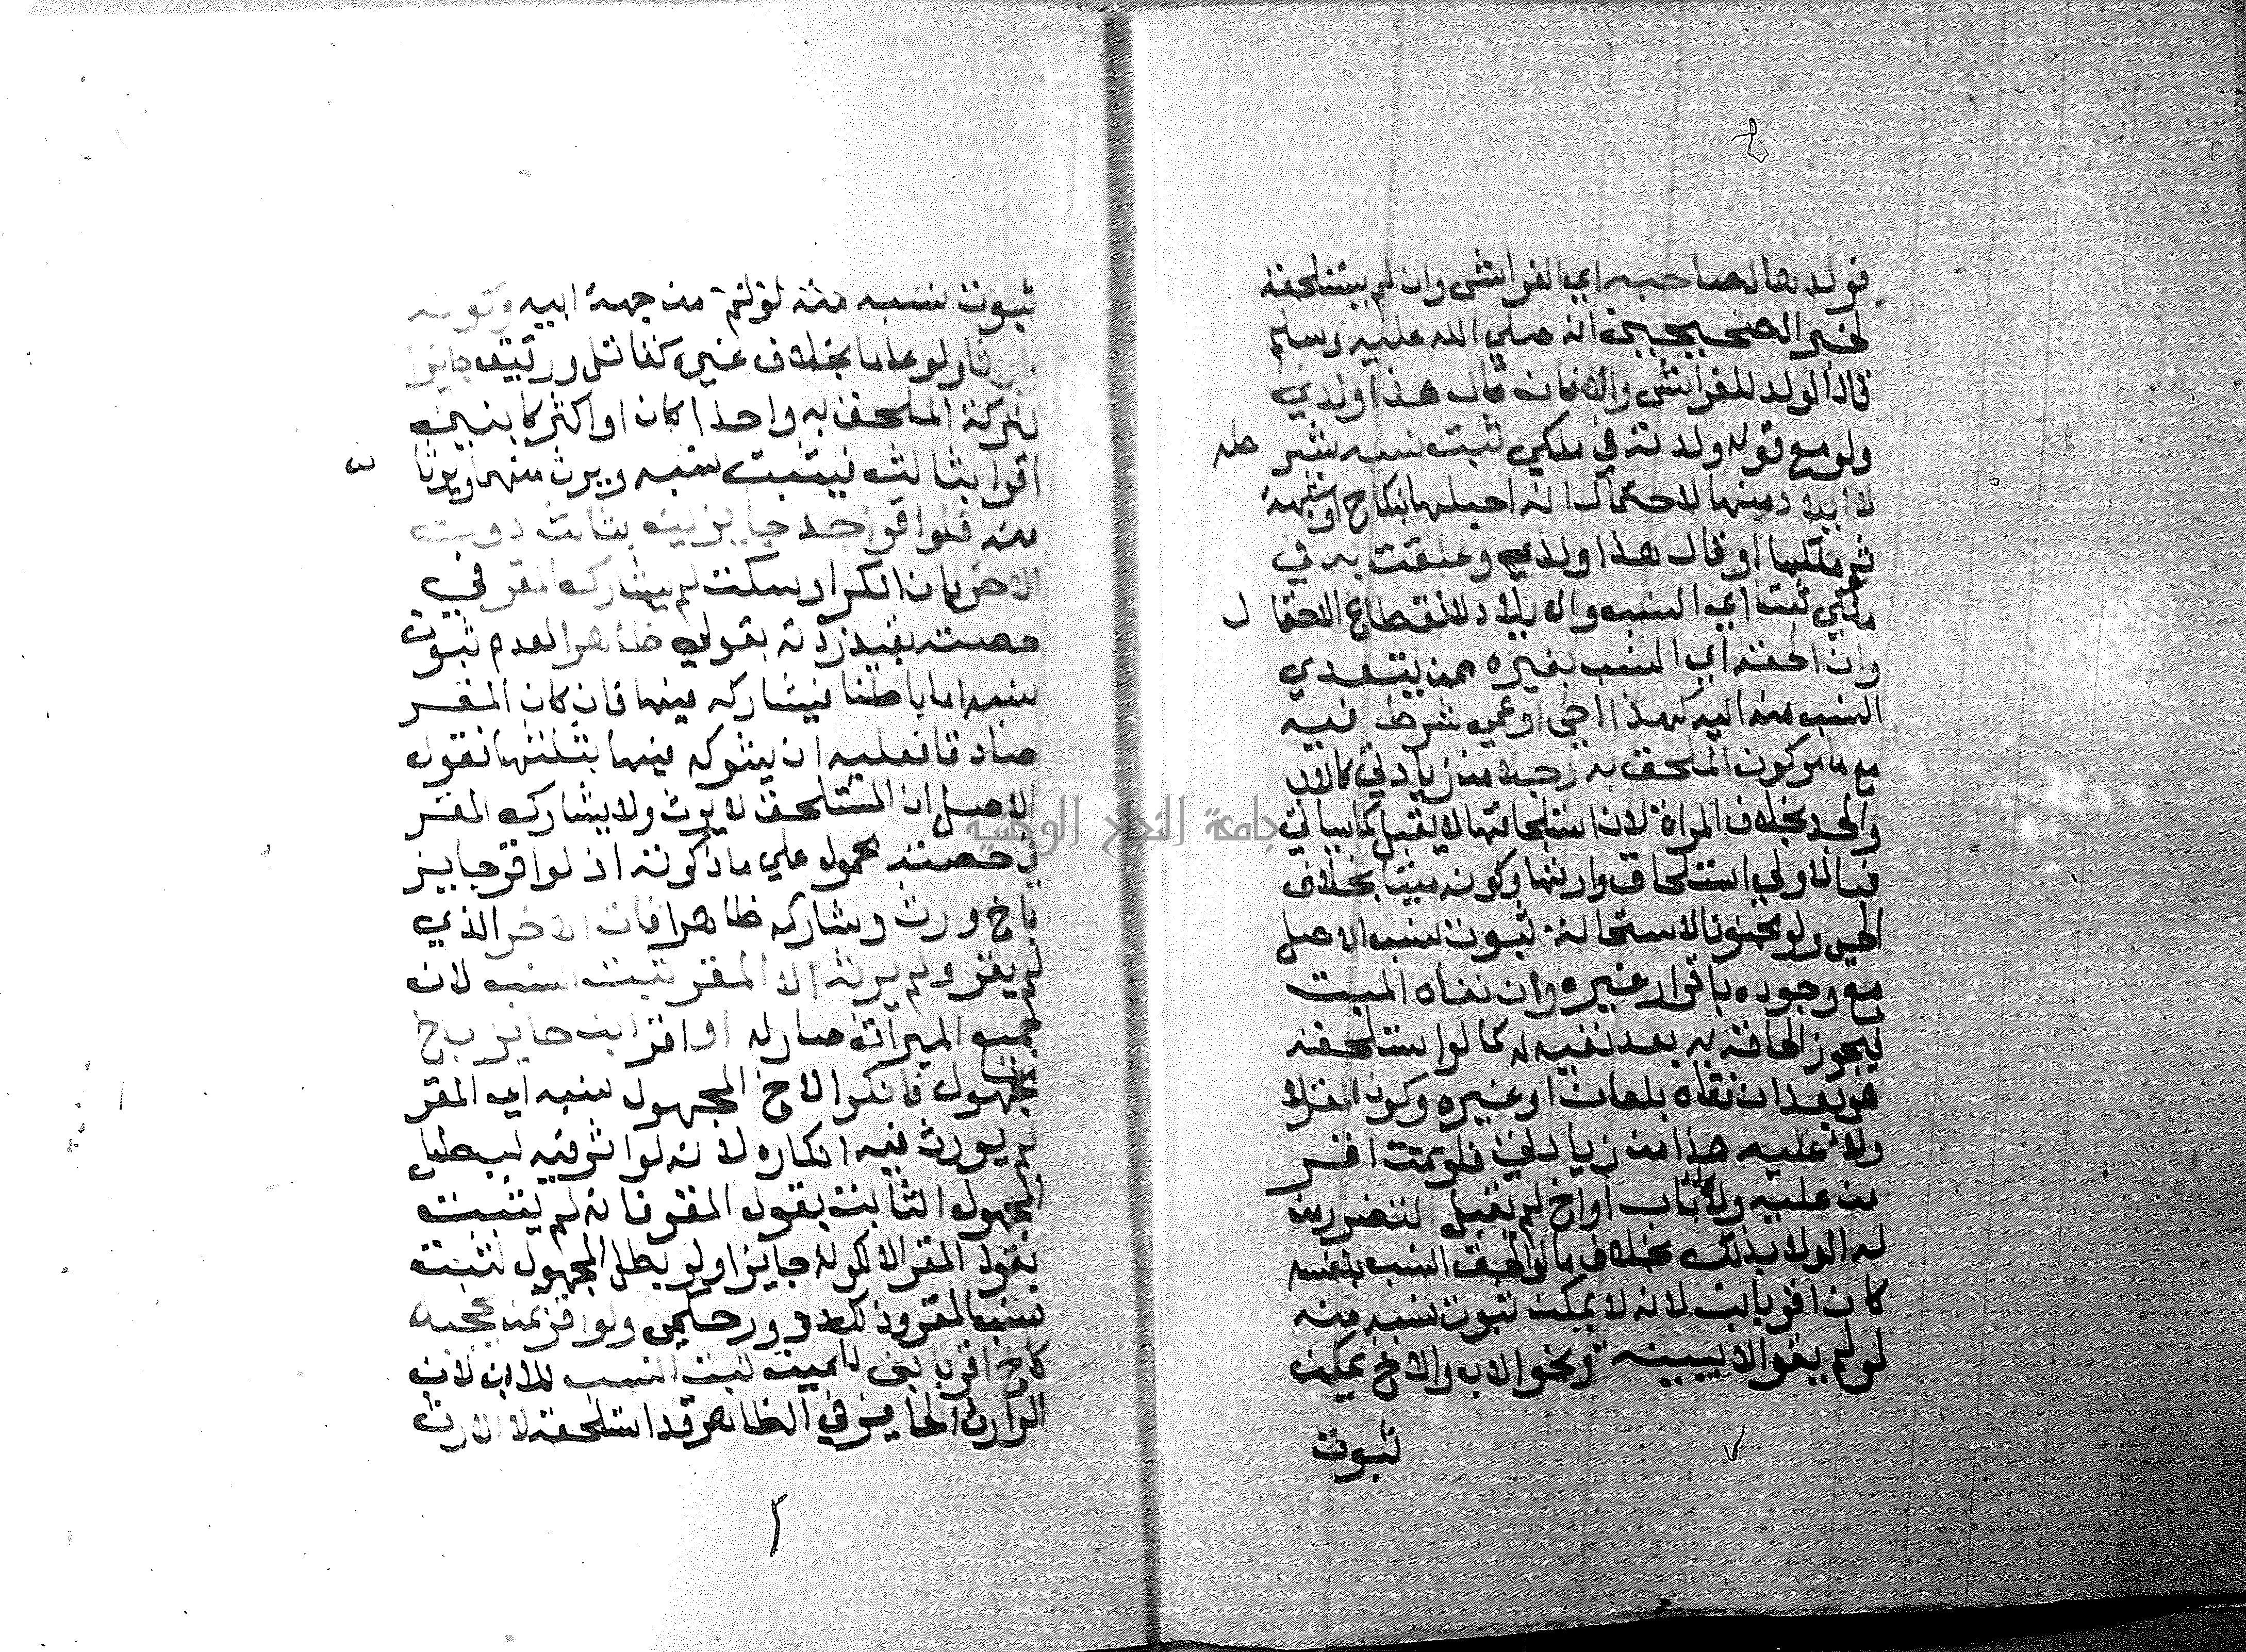 فولدها لصاحبه اي الفراش وان لم يستلحقه
لخبر الصحيحين انه صلي الله عليه وسلم
قال الولد للفراش والا فان قال هذا ولدي
ولو مع قوله ولدته في ملكي ثبت نسبه بشر طه
لا ايلاد منها لاحتمال انه احبلها بنكاح او شبهة
ثم ملكها او قال هذا ولدي وعلقت به في
ملكي ثبتا اي النسب والايلاد لانقطاع الاحتما ل
وان الحقه اي النسب بغيره ممن يتعدي
النسب منه اليه كهذا اخي او عمي شرط فيه
مع ما مر كون الملحق به رجلا من زيادتي كالاب
والجد بخلاف المراة لان استلحاقها لا يقبل كما ياتي
فبالاولي استلحاق وارثها وكونه ميتا بخلاف
الحي ولو مجنونا لاستحالة ثبوت نسب الاصل
مع وجوده باقرار غيره وان نفاه الميت
فيجوز الحاقه به بعد نفيه له كما لو استلحقه
هو بعد ان نفاه بلعان او غيره وكون المقر لا
ولاء عليه هذا من زيادتي فلو اقر
من عليه ولا باب او اخ لم يقبل لتضرر من
له الولا بذلك بخلاف ما لو الحق النسب بنفسه
كان اقر بابن لانه لا يمكن ثبوت نسبه منه
لو لم يقر الا ببينة ونحو الاب والاخ يمكن
ثبوت
ثبوت نسبه منه لو لم من جهة ابيه وكونه
وارثا ولو عاما بخلاف غيره كقاتل ورقيق حايزا
لتركة الملحق به واحدا كان او اكثر كابنين
اقرا بثالث فيثبت نسبه ويرث منهما ويرثا ن
منه فلو اقر احد حايزين بثالث دون
الاخر بان انكر او سكت لم يشاركه المقر في
حصته بقيد زدته بقولي ظاهرا لعدم ثبوت
نسبه اما باطنا فيشاركه فيها فان كان المقر
صادقا فعليه ان يشركه فيها بثلثها فقول
الاصل ان المستلحق لا يرث ولا يشارك المقر
في حصته محمول علي ما ذكرته اذ لو اقر حايز
باخ ورث وشاركه ظاهرا فان الاخر الذي
لم يقر ولم يرثه الا المقر ثبت النسب لان
جميع الميراث صار له او اقر ابن حايز باخ
مجهول فانكر الاخ المجهول نسبه اي المقر
لم يورث فيه انكاره لانه لو اثر فيه لبطل
المجهول الثابت بقول المقر فانه لم يثبت
بقول المقر الا لكونه حايزا ولو بطل المجهول لثبت
نسب المقر وذلك دور حكمي ولو اقر بمن يحجبه
كاخ اقر بابن للميت ثبت النسب للابن لان
الوارث الحايز في الظاهر قد استلحقه لا الارث
جامعة النجاح الوطنية